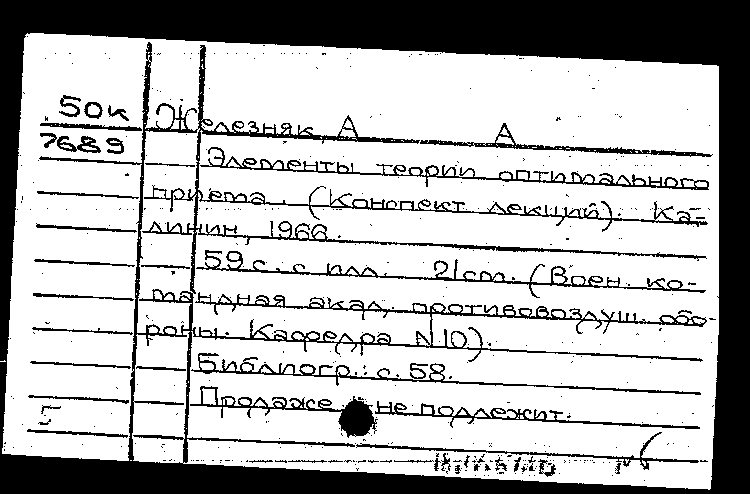 50к Железняк, А А
7689
Элементы теории оптимального
приема. (Конспект лекций). Ка-
линин, 1966.
59 с. с илл. 21 cm. (Воен. ко-
мандная акад. противовоздуш. обо-
роны. Кафедра N 10).
Библиогр.: с. 58.
Продаже не подлежит.
5